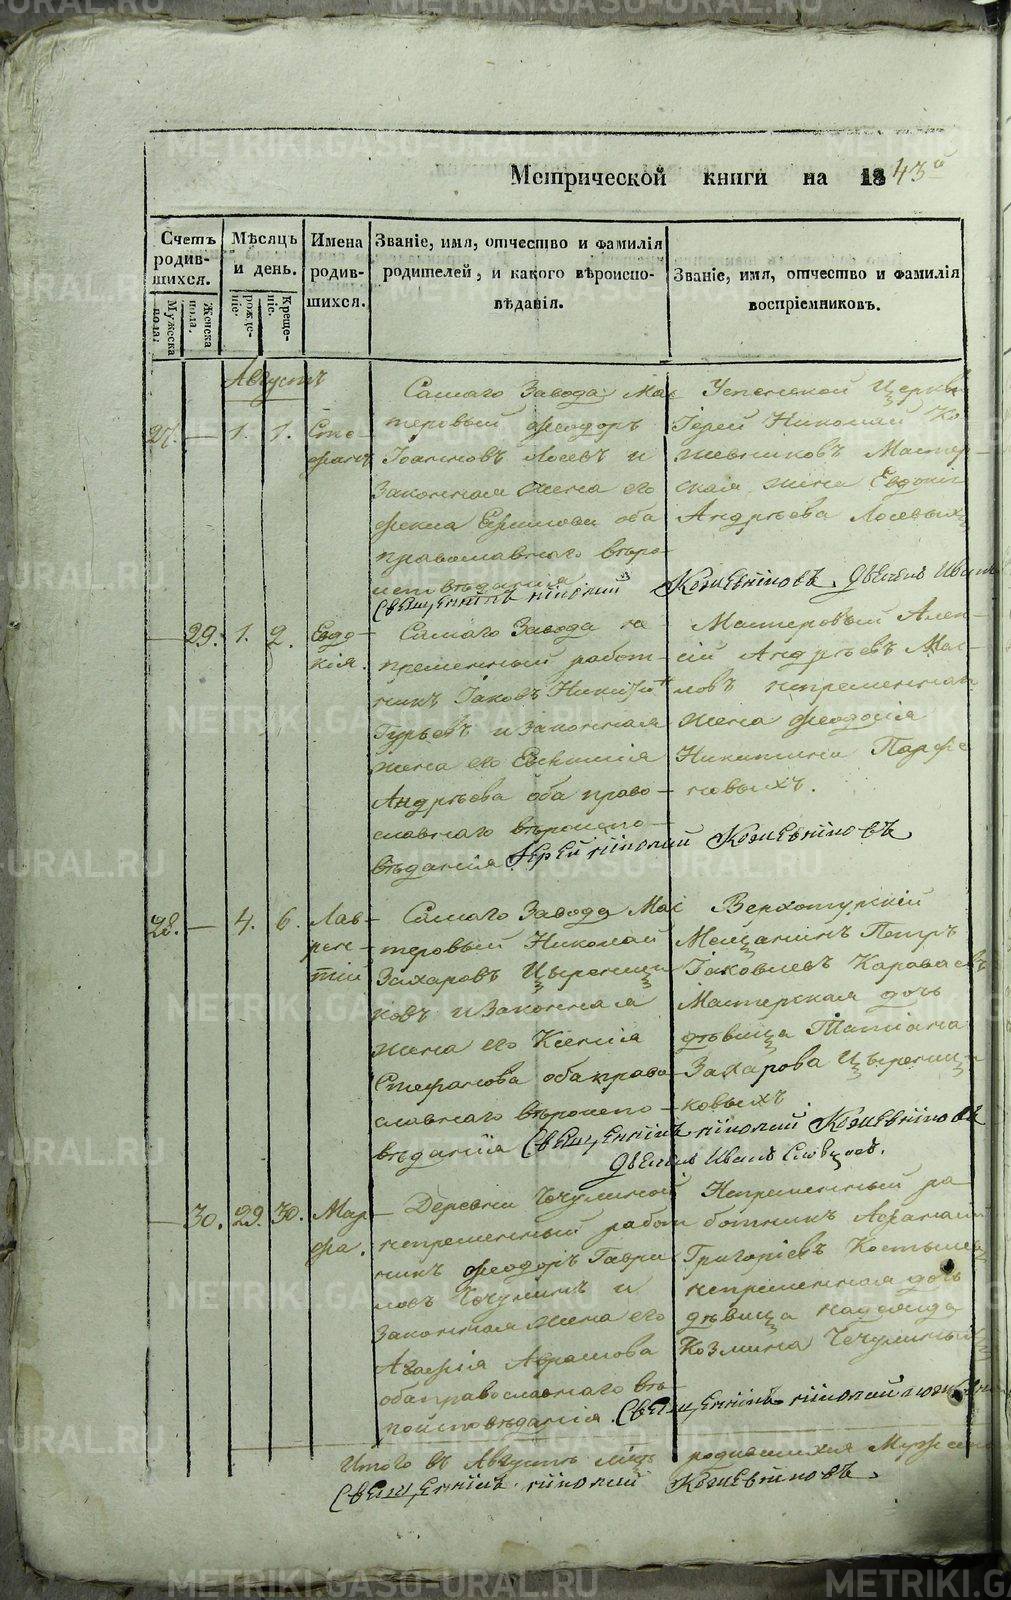 Метрической книги на 1843й
Счетъ родив-шихся.
Мужеска пола.
Женска пола.
Мѣсяцъ и день.
рожде-ніе.
Креще-ніе.
Имена родив-шихся.
Званіе, имя, отчество и фамилія
родителей, и какого вѣроиспо-
вѣданія.
Званіе, имя, отчество и фамилія
воспріемниковъ.
Августъ
27. — 1. 1. Сте-
фанъ
Самаго Завода Мас
теровый Феодоръ
Іоанновъ Лосевъ и
Законная жена его
Фекла Ефимова оба
православнаго вѣро-
исповѣданія
Успенской Церкви
Іерей Николай Ко
жевниковъ Мастер-
ская жена Евдокія
Андрѣева Лосевыхъ
Священникъ Николай Кожевниковъ. Дьячекъ Иванъ
— 29. 1. 2. Евдо-
кія.
Самаго Завода не
премѣнный работ-
никъ Іаковъ Никитин
Гурьевъ и Законная
жена его Евѳимія
Андрѣева оба право-
славнаго вѣроиспо-
вѣданія
Мастеровый Алек-
сій Андрѣевъ Мас-
ловъ непремѣнная
жена Феодосія
Никитина Парфе
новыхъ.
Іерей Николай Кожевниковъ
28. — 4. 6. Лав-
рен-
тій
Самаго Завода Мас
теровый Николай
Захаровъ Цыренщи
ковъ и Законная
жена его Ксенія
Стефанова оба право
славнаго вѣроиспо-
вѣданія
Верхотурскій
Мещанинъ Петръ
Іаковлевъ Караваевъ
Мастерская дочь
дѣвица Татіана
Захарова Цыренщи-
ковыхъ
Священникъ Николай Кожевниковъ
Дьячекъ Иванъ Словцовъ.
— 30. 29. 30. Мар-
фа.
Деревни Чечулиной
непремѣнный работ
никъ Феодоръ Гаври
ловъ Чечулинъ и
Законная жена его
Агафія
оба православнаго вѣ-
роисповѣданія.
Непремѣнный ра-
ботникъ Афанасій
Григоріевъ Костылев
непремѣнная дочь
дѣвица Надежда
Козмина Чечулиныхъ
Священникъ Николай Кожевни
Итого въ Августѣ мцѣ родившихся Мужеска
Священникъ Николай Кожевниковъ.
METRIKI.GASU-URAL.RU